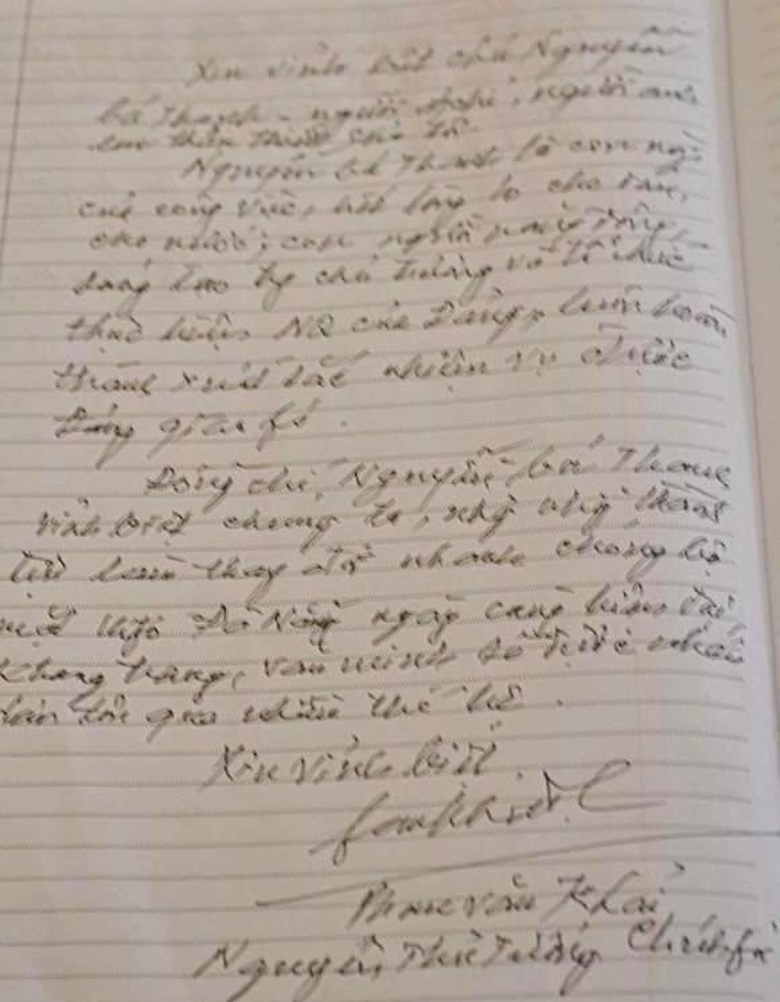 Xin vĩnh biệt chú Nguyễn
bá Thanh - người đ/chí, người anh
em thân thiết của tôi.
Nguyễn bá Thanh là con ng'
của công việc, hết lòng lo cho dân,
cho nước; con người năng động,
sáng tạo chủ trương và tổ chức
thực hiện NQ của Đảng, luôn hoàn
thành xuất sắc nhiệm vụ được
Đảng giao fó.
Đồng chí Nguyễn bá Thanh
vĩnh biệt chúng ta, nhg nhg' thành
tựu làm thay đổi nhanh chóng bộ
mặt th/fố Đà Nẵng ngày càng hiện đại,
khang trang, văn minh sẽ được nhân
dân tôn qua nhiều thế hệ.
Xin vĩnh biệt
Phan văn Khải
Nguyên Thủ Tướng Chính fủ